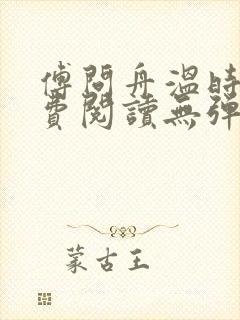 傅問舟溫時
費閱讀無彈
蒙古王